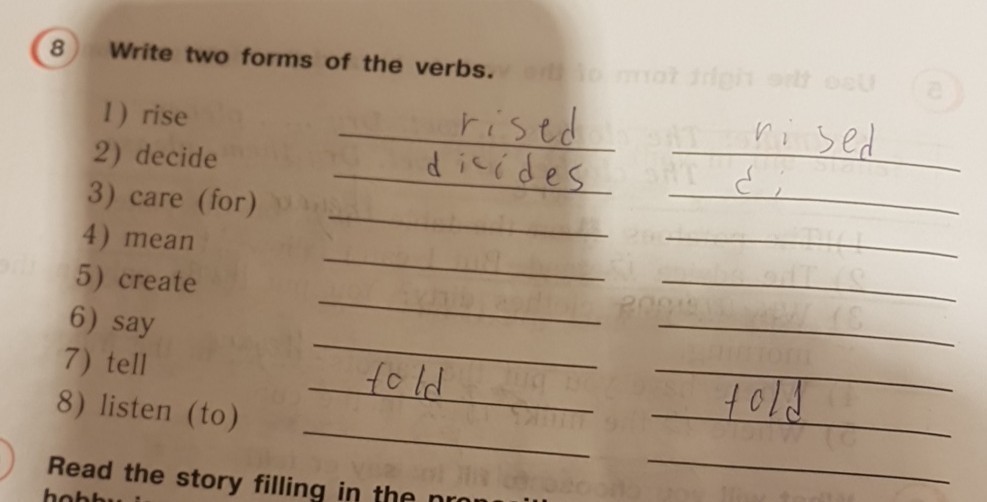 8 Write two forms of the verbs.
1) rise rised rised
2) decide dicides di
3) care (for)
4) mean
5) create
6) say
7) tell told told
8) listen (to)
Read the story filling in the